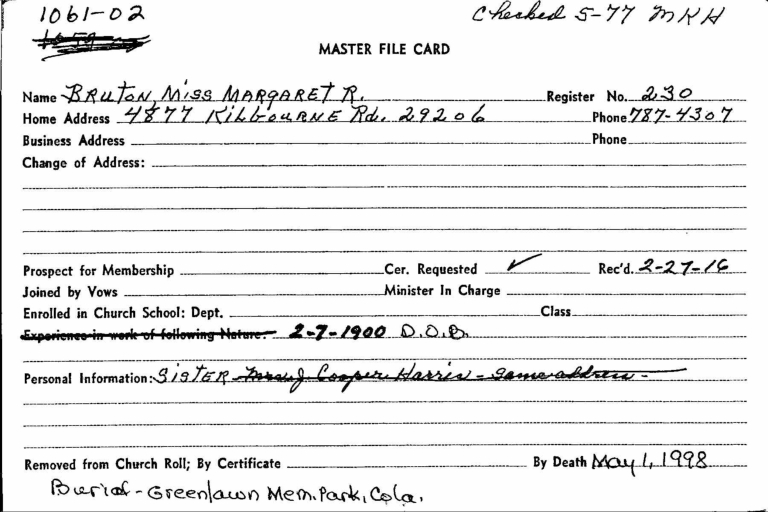 1061-02
Checked 5-77 MKH
MASTER FILE CARD
Name BRUTON, MISS MARGARET R. Register No. 230
Home Address 4877 KILBOURNE Rd. 29206 Phone 787-4307
Business Address Phone
Change of Address:
Prospect for Membership Cer. Requested ✓ Rec'd. 2-27-16
Joined by Vows Minister In Charge
Enrolled in Church School: Dept. Class
Experience in work of following Nature: 2-7-1900 D.O.B.
Personal Information: SISTER Mrs. J Cooper Harris - same address -
Removed from Church Roll; By Certificate By Death May 1, 1998
Burial - Greenlawn Mem. Park, Cola.